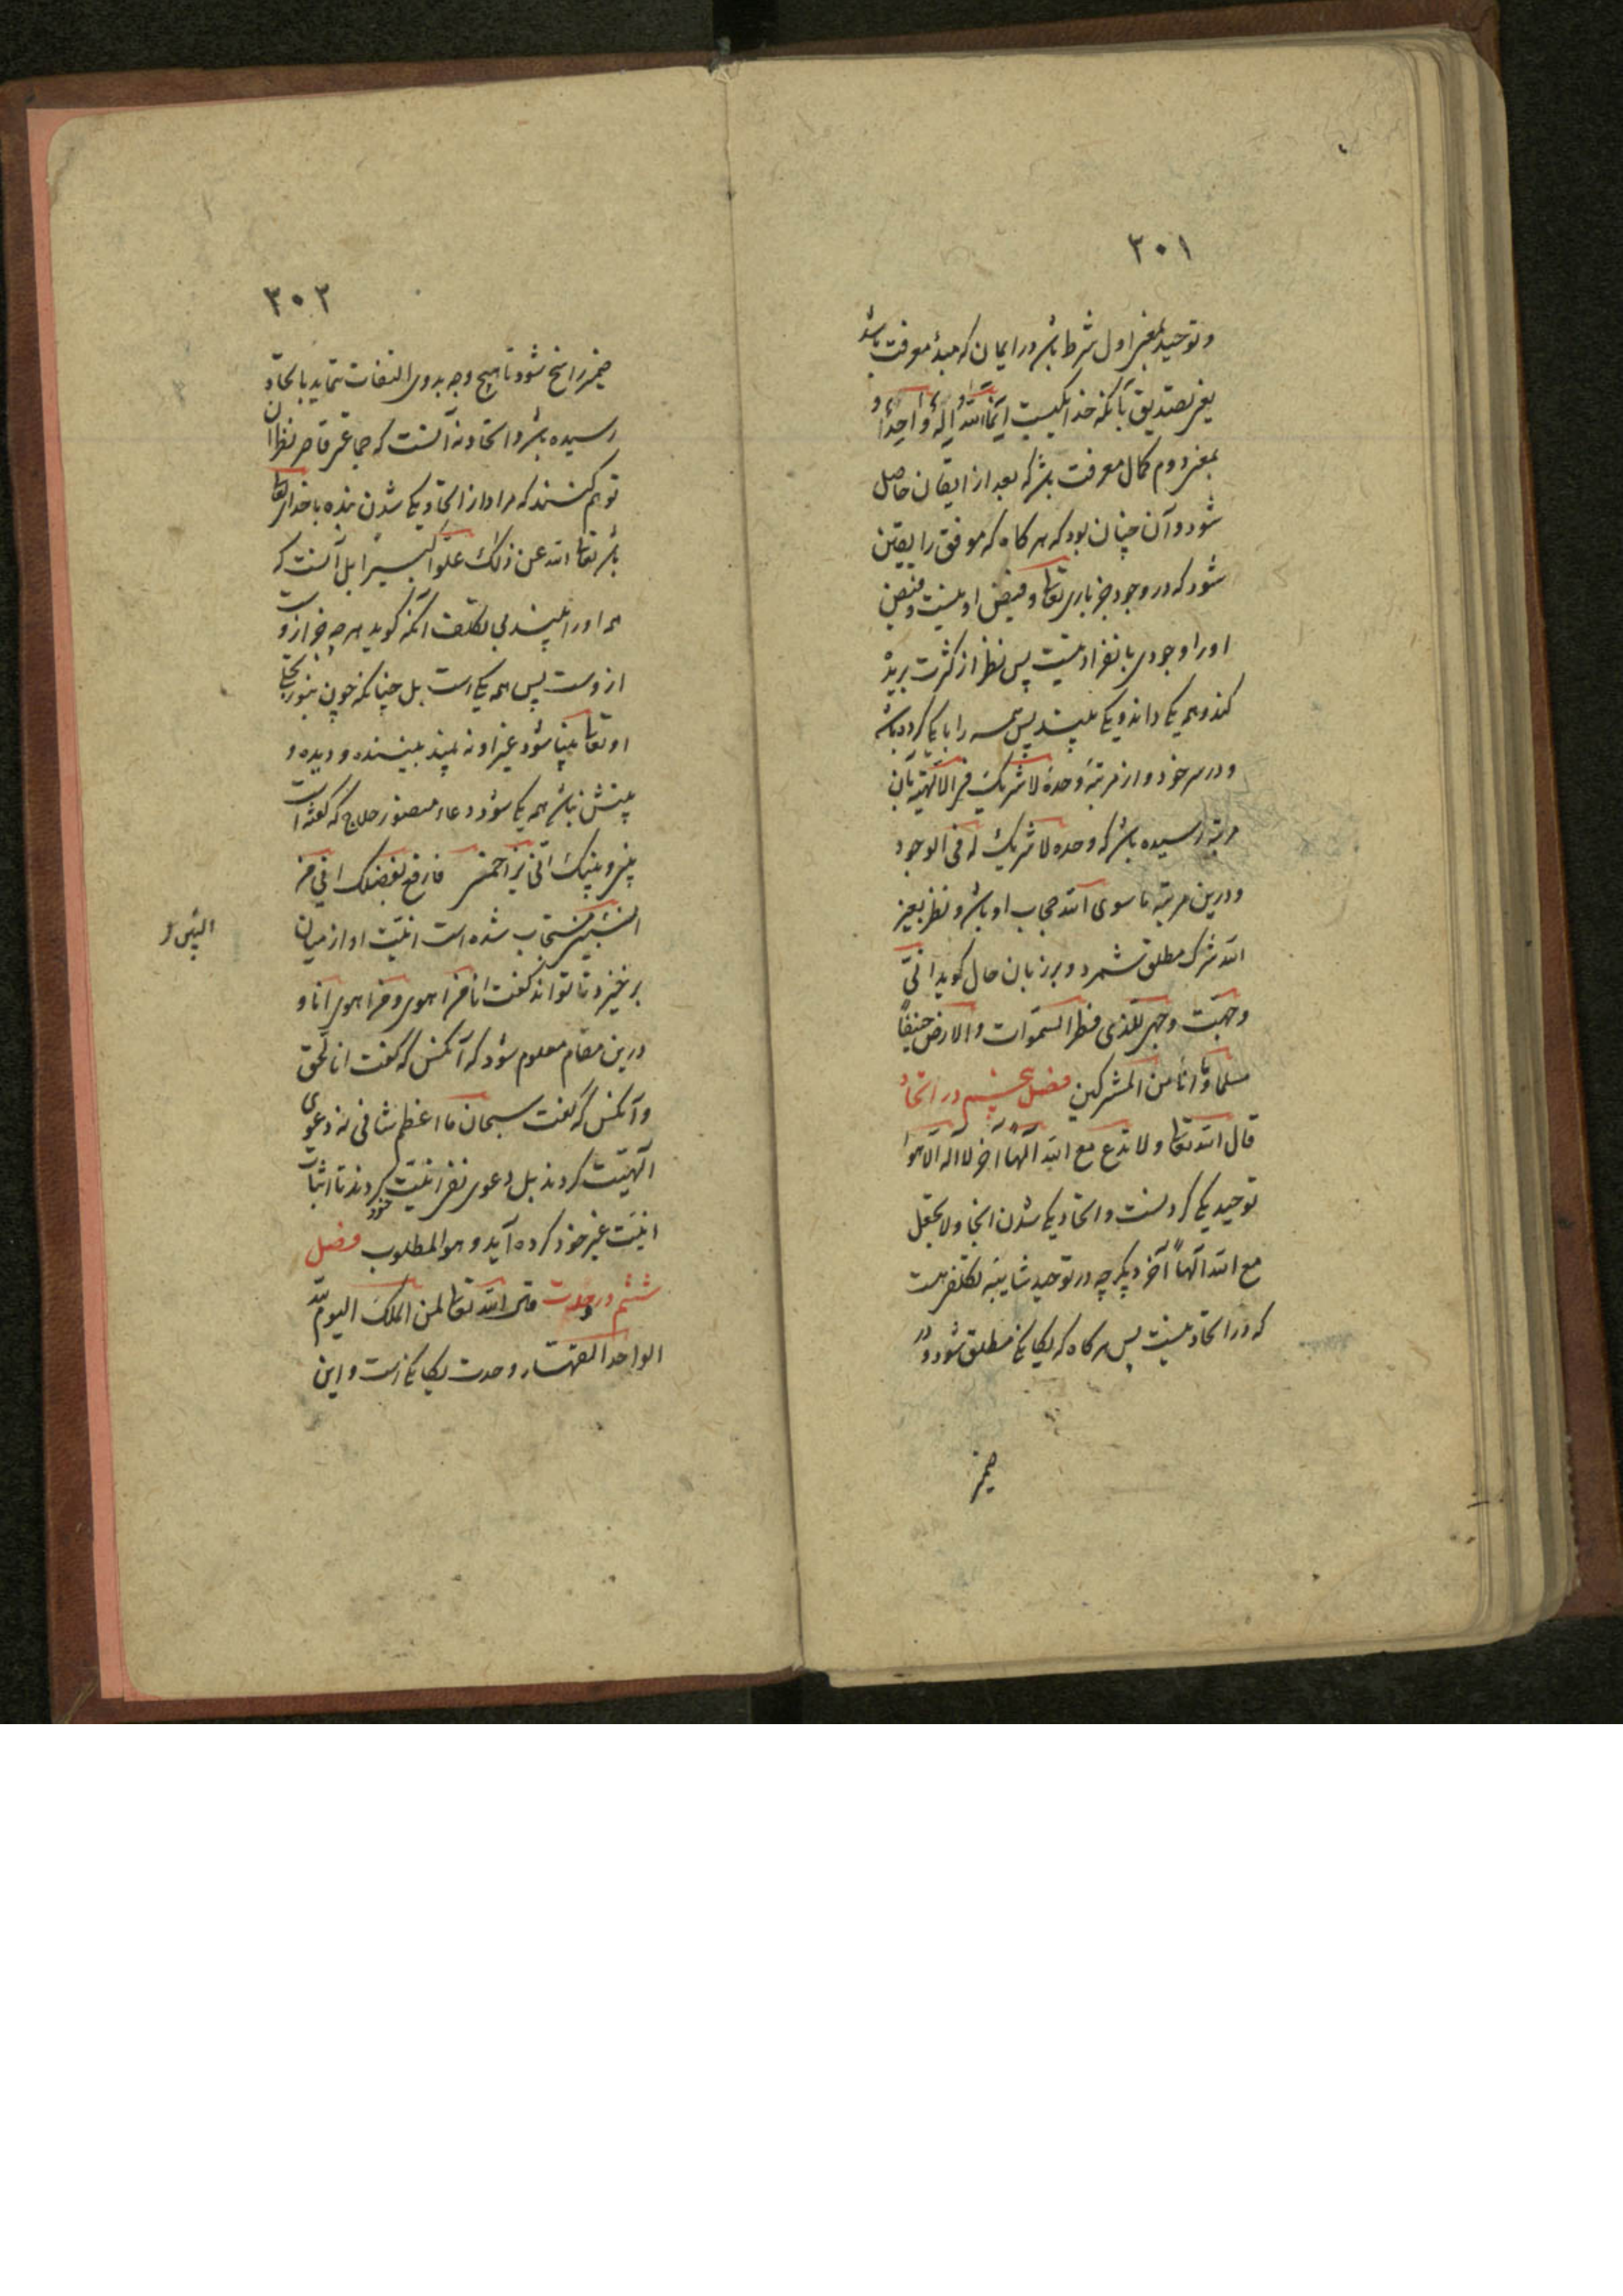 ۳۰۱
و توحید بمعنی اول شرط باشد در ایمان که مبدأ معرفت باشد
یعنی تصدیق بآنکه خدا یکیست انما الله اله واحد و
بمعنی دوم کمال معرفت باشد که بعد از ایقان حاصل
شود و آن چنان بود که هر گاه که موفق را یقین
شود که در وجود جز باری تعالی و فیض او نیست و فیض
او را وجودی بانفراد نیست پس نظر از کثرت بریده
کند و همه یکی داند و یکی بیند پس همه را با یکی کرده باشد
و در سر خود و از مرتبه وحده لا شریک له فی الالهیة بآن
مرتبه رسیده باشد که وحده لا شریک له فی الوجود
و درین مرتبه ما سوی الله حجاب او باشد و نظر بغیر
الله شرک مطلق شمرد و بر زبان حال گوید انی
وجهت وجهی للذی فطر السموات والارض حنیفا
مسلما و ما انا من المشرکین فصل پنجم در اتحاد
قال الله تعالی ولا تدع مع الله الها آخر لا اله الا هو
توحید یکی کردنست و اتحاد یکی شدن انجا ولا تجعل
مع الله الها آخر دیگر چه در توحید شایبه تکلفی هست
که در اتحاد نیست پس هر گاه که یگانگی مطلق شود و در
ضمیر
۳۰۲
ضمیر راسخ شود تا بهیچ وجه بدوی التفات ننماید باتحاد
رسیده باشد و اتحاد نه آنست که جماعتی قاصر نظران
توهم کنند که مراد از اتحاد یکی شدن بنده با خدای تعالی
باشد تعالی الله عن ذلک علوا کبیرا بل آنست که
همه او را بیند بی تکلف آنکه گوید هر چه جز ازوست
ازوست پس همه یکی است بل چنانکه چون بنور تجلی
او تعالی بینا شود غیر او نه بیند بیننده و دیده و
بینش نباشد همه یکی شود دعاء منصور حلاج که گفته است
بینی و بینک انی ینازعنی فارفع بفضلک انیی من
البین مستجاب شده است انیت او از میان
الشی
برخیزد تا تواند گفت انا من اهوی و من اهوی انا و
درین مقام معلوم شود که آنکس که گفت انا الحق
و آنکس که گفت سبحان ما اعظم شانی نه دعوی
الهیت کردند بل دعوی نفی انیت خود کردند تا اثبات
انیت غیر خود کرده آید و هو المطلوب فصل
ششم در وحدت قال الله تعالی لمن الملک الیوم لله
الواحد القهار وحدت یگانگی است و این